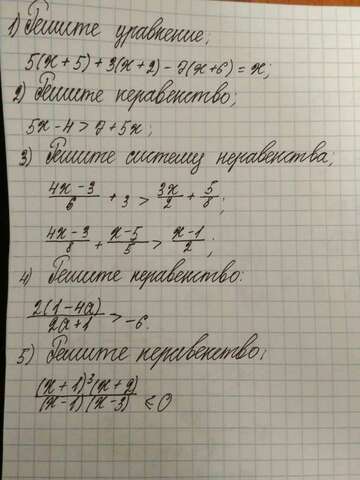 1) Решите уравнение;
5(x+5)+3(x+2)-7(x+6)=x;
2) Решите неравенство;
5x-4>7+5x;
3) Решите систему неравенства;
(4x-3)/6 + 3 > 3x/2 + 5/8;
(4x-3)/8 + (x-5)/5 > (x-1)/2;
4) Решите неравенство:
2(1-4a)/(2a+1) > -6.
5) Решите неравенство;
(x+1)³(x+2)/(x-1)(x-3) ≤ 0